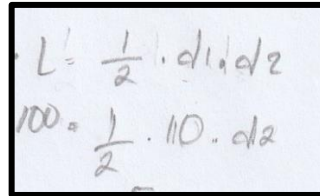 L = 1/2 . d1 . d2
100 = 1/2 . 10 . d2